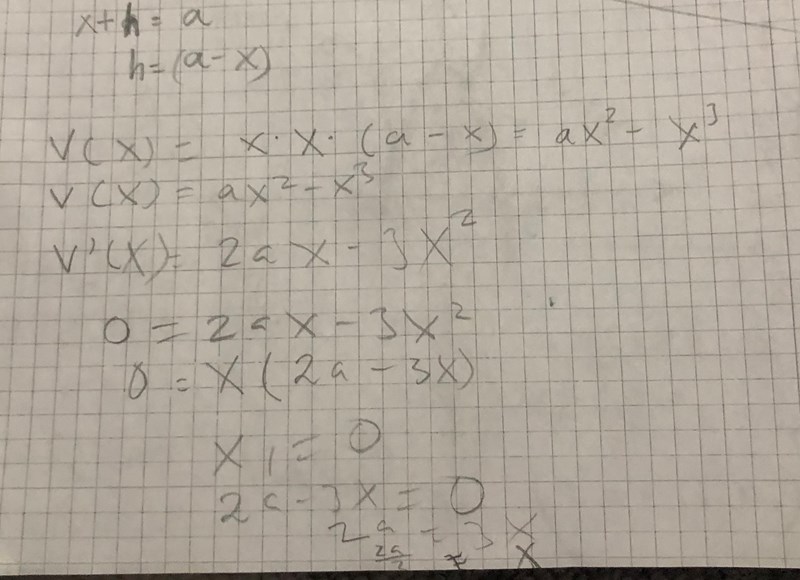 x+h = a
h=(a-x)
V(x) = x·x·(a-x) = ax²-x³
V(x) = ax²-x³
V'(x)= 2ax-3x²
0 = 2ax-3x²
0 = x(2a-3x)
x₁ = 0
2a-3x = 0
2a = 3x